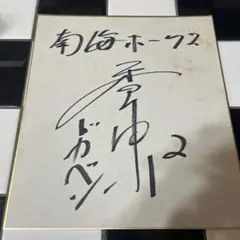 南海ホークス
香川
ドカベン
12